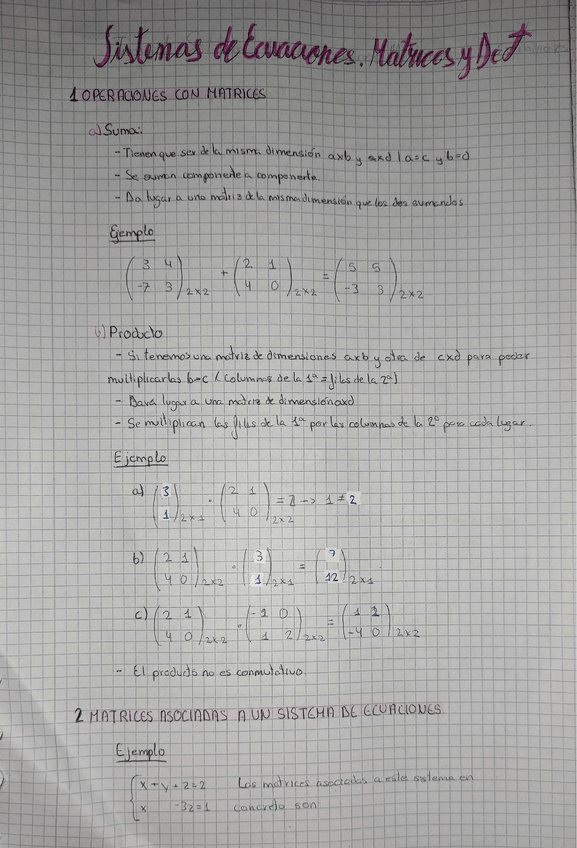 Sistemas de Ecuaciones. Matrices y Det
1 OPERACIONES CON MATRICES
a) Suma:
- Tienen que ser de la misma dimensión axb y cxd / a=c y b=d
- Se suman componente a componente.
- Da lugar a una matriz de la misma dimensión que los dos sumandos
Ejemplo
( 3 4 ; -7 3 )2x2 + ( 2 1 ; 4 0 )2x2 = ( 5 5 ; -3 3 )2x2
b) Producto
- Si tenemos una matriz de dimensiones axb y otra de cxd para poder
multiplicarlas b=c (columnas de la 1ª = filas de la 2ª)
- Dará lugar a una matriz de dimensión axd
- Se multiplican las filas de la 1ª por las columnas de la 2º para cada lugar.
Ejemplo
a) ( 3 ; 1 )2x1 · ( 2 1 ; 4 0 )2x2 = → 1 ≠ 2
b) ( 2 1 ; 4 0 )2x2 · ( 3 ; 1 )2x1 = ( 7 ; 12 )2x1
c) ( 2 1 ; 4 0 )2x2 · ( -1 0 ; 1 2 )2x2 = ( 1 2 ; -4 0 )2x2
- El producto no es conmutativo.
2 MATRICES ASOCIADAS A UN SISTEMA DE ECUACIONES
Ejemplo
{ x - y + z = 2 Las matrices asociadas a este sistema en
x -3z=1 concreto son